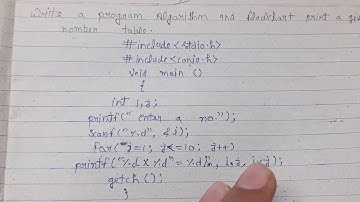 Write a program Algorithm and floadchart print a giv
number table.
#include<stdio.h>
#include<conio.h>
void main ()
{
int i,j;
printf(" enter a no.");
scanf("%d", &i);
For(j=1; j<=10; j++)
printf("%d x %d = %d\n", i,j, i*j);
getch();
}